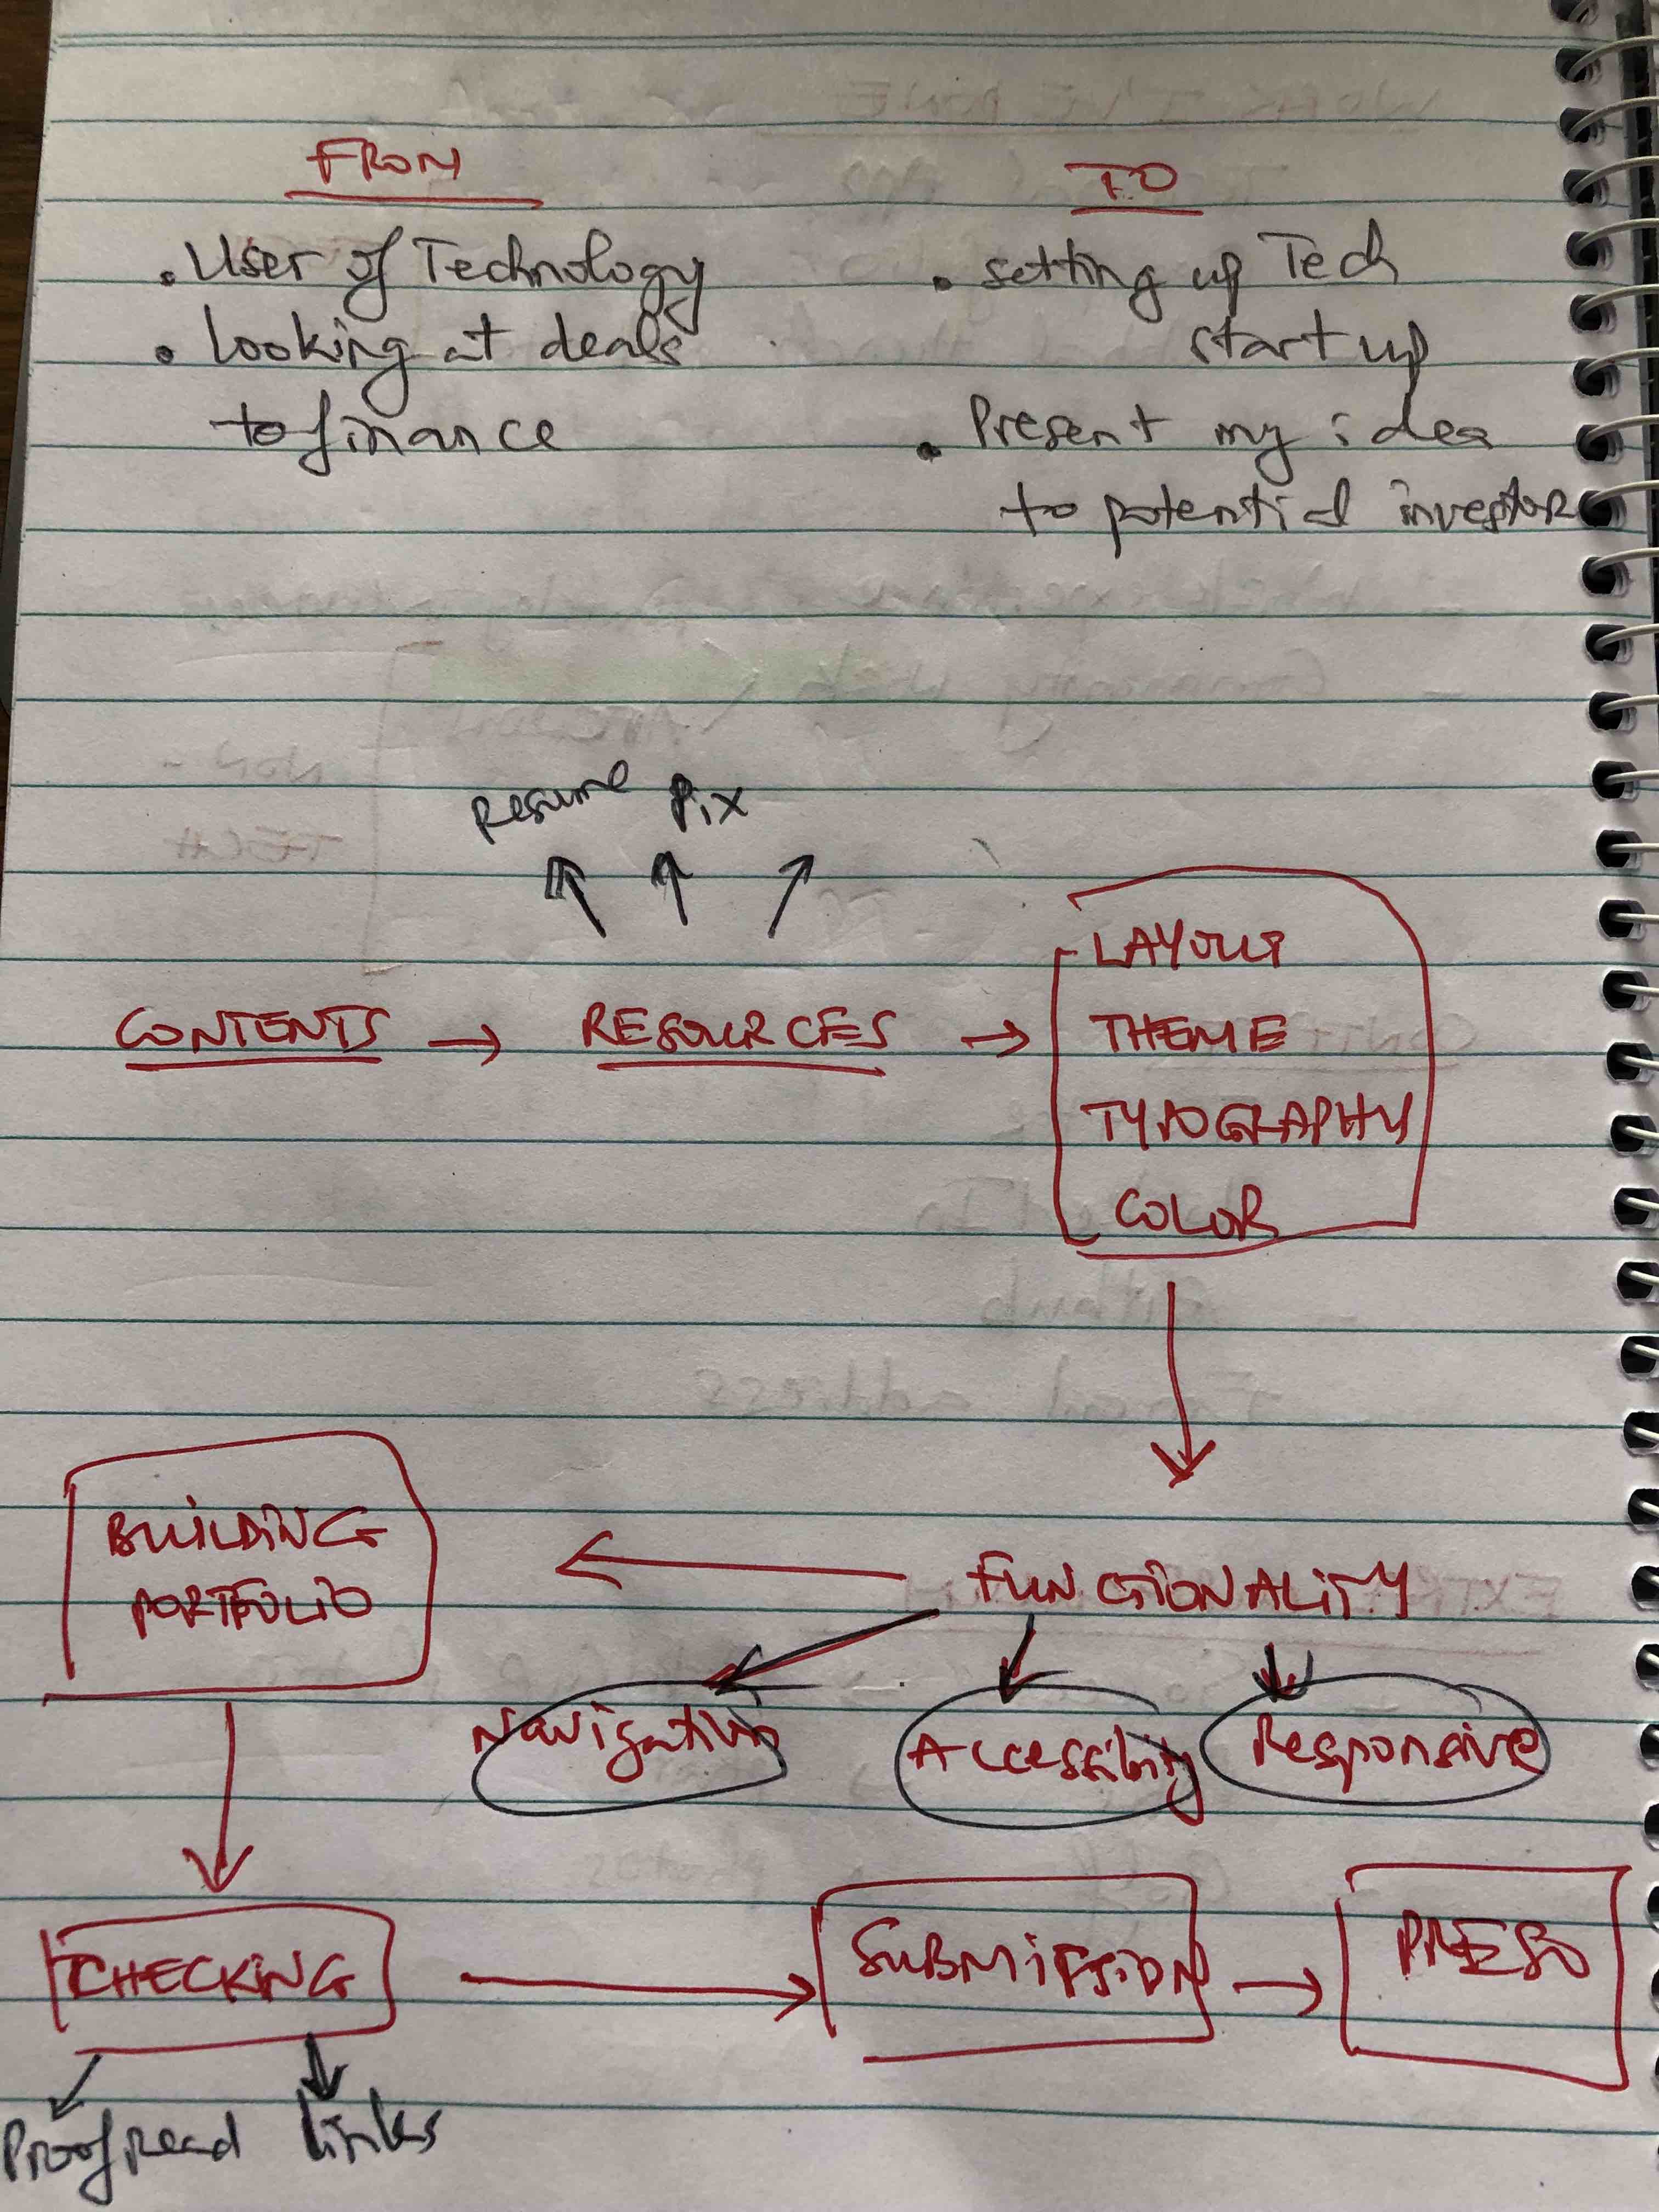 FROM
TO
• User of Technology
• setting up Tech
• looking at deals
start up
to finance
• Present my idea
to potential investor
Resume Pix
LAYOUT
CONTENTS → RESOURCES → THEME
TYPOGRAPHY
COLOR
BUILDING
PORTFOLIO
FUNCTIONALITY
Navigation
Accessibity
Responsive
CHECKING
SUBMISSION
PRES
Proofread links